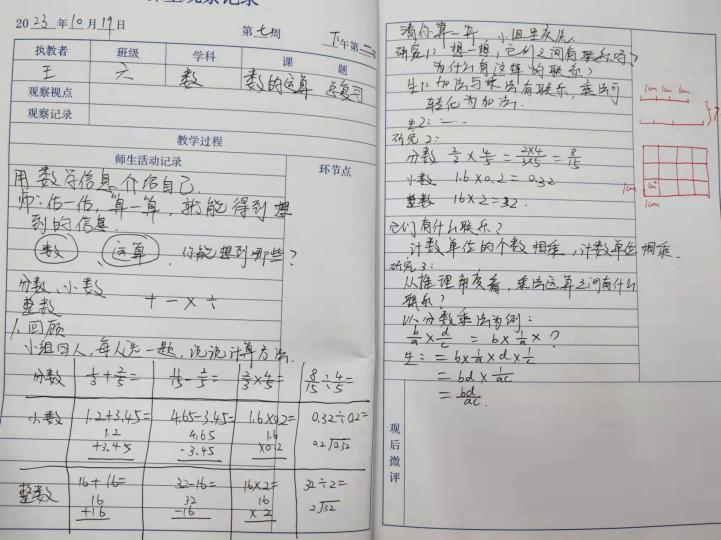 2023年10月19日
第七周
下午第二
执教者 班级 学科 课 题
王 六 数 数的运算 总复习
观察视点
观察记录
教学过程
师生活动记录
环节点
用数字信息介绍自己.
师:估一估,算一算,就能得到想
到的信息.
数、运算.你能想到哪些?
分数、小数
整数 + - × ÷
1.回顾
小组四人,每人选一题,说说计算方法.
分数 1/3+2/5= 4/15-2/5= 2/3×4/5= 8/15÷4/5=
小数 1.2+3.45= 4.65-3.45= 1.6×0.2= 0.32÷0.2=
1.2 4.65 1.6 0.2 0.32
+3.45 -3.45 ×0.2
整数 16+16= 32-16= 16×2= 32÷2=
16 32 16 2 32
+16 -16 ×2
请你算一算,小组里交流.
研究1:想一想,它们之间有联系吗?
为什么有这样的联系?
生1:加法与乘法有联系,乘法可
转化为加法.
生2:—.
研究2:
分数 2/3×4/5=2×4/3×5=8/15
小数 1.6×0.2=0.32
整数 16×2=32.
它们有什么联系?
计数单位的个数相乘,计数单位相乘.
研究3:
从推理角度看,乘法运算之间有什么
联系?
以分数乘法为例:
b/a×d/c=b×1/a×?
生:=b×1/a×d×1/c
=bd×1/ac
=bd/ac.
1cm 1cm
1cm
1cm
1cm
观后微评